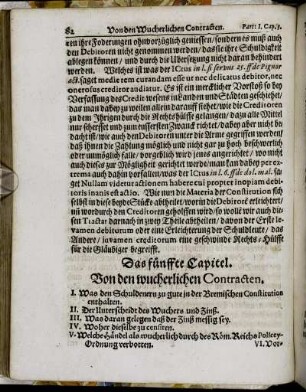 82 Von den Wucherlichen Contracten. Part: I. Cap. 5.
ren ihre Foderungen ohnvorzüglich geniessen/ sondern es muß auch
den Debitoren nicht genommen werden/ das sie ihre Schuldigkeit
ablegen können/ und durch die Ubersetzung nicht daran behindert
werden. Welches ist was der ICtus in l.
saget medie rem curandam esse ut nec delicatus debitor, nec
onerosus creditor audiatur. Es ist ein mercklicher Vorstoß so bey
Verfassung des Credit wesens in Landen und Städten geschiehet,
das man dabey zu weilen allein darauff siehet/ wie die Creditoren
zu dem Ihrigen durch die Rechts hülffe gelangen/ dazu alle Mittel
nur scherffet und zum rasser Creditor verfasset/ aber nicht auch da-
bey dacht ist/ wie auch den Debitoren unter die Arme gegriffen werden/
daß ihnen die Zahlung möglich und nicht gar zu hoch beschwerlich
oder unmöglich falle/ vorgeblich wird jenes angerichtet/ wo nicht
auch dieses zur Möglichkeit gerichtet werde/ man kan dabey per ex-
tremum auch dahin vorfallen/ was der ICtus in l. 6. ff. de dol. mal. sa-
get Nullam videtur actionem habere cui propter inopiam debi-
toris inanis est actio. Wie nun die Materia der Constitution sich
selbst in diese beyde Stücke abtheilet/ worin die Debitorē erleichtert/
nū wordurch den Creditoren geholffen wird/ so wolle wir auch die-
sen Tractat darnach in zwey Theile abtheilen/ davon der Erste le-
vamen debitorum oder eine Erleichterung der Schuldleute/ das
Andere/ juvamen creditorum eine geschwinde Rechts-Hülffe
für die Gläubiger begreifft.
Das fünffte Capitel.
Von den wucherlichen Contracten.
I. Was den Schuldenern zu gute in der Bremischen Constitution
enthalten.
II. Der Unterscheidt des Wuchers und Zinß.
III. Was daran gelegen daß der Zinß messig sey.
IV. Woher dieselbe zu censiren.
V. Welche Händel als wucherlich durch des Röm. Reichs Policey-
Ordnung verbotten.
VI. Vor-